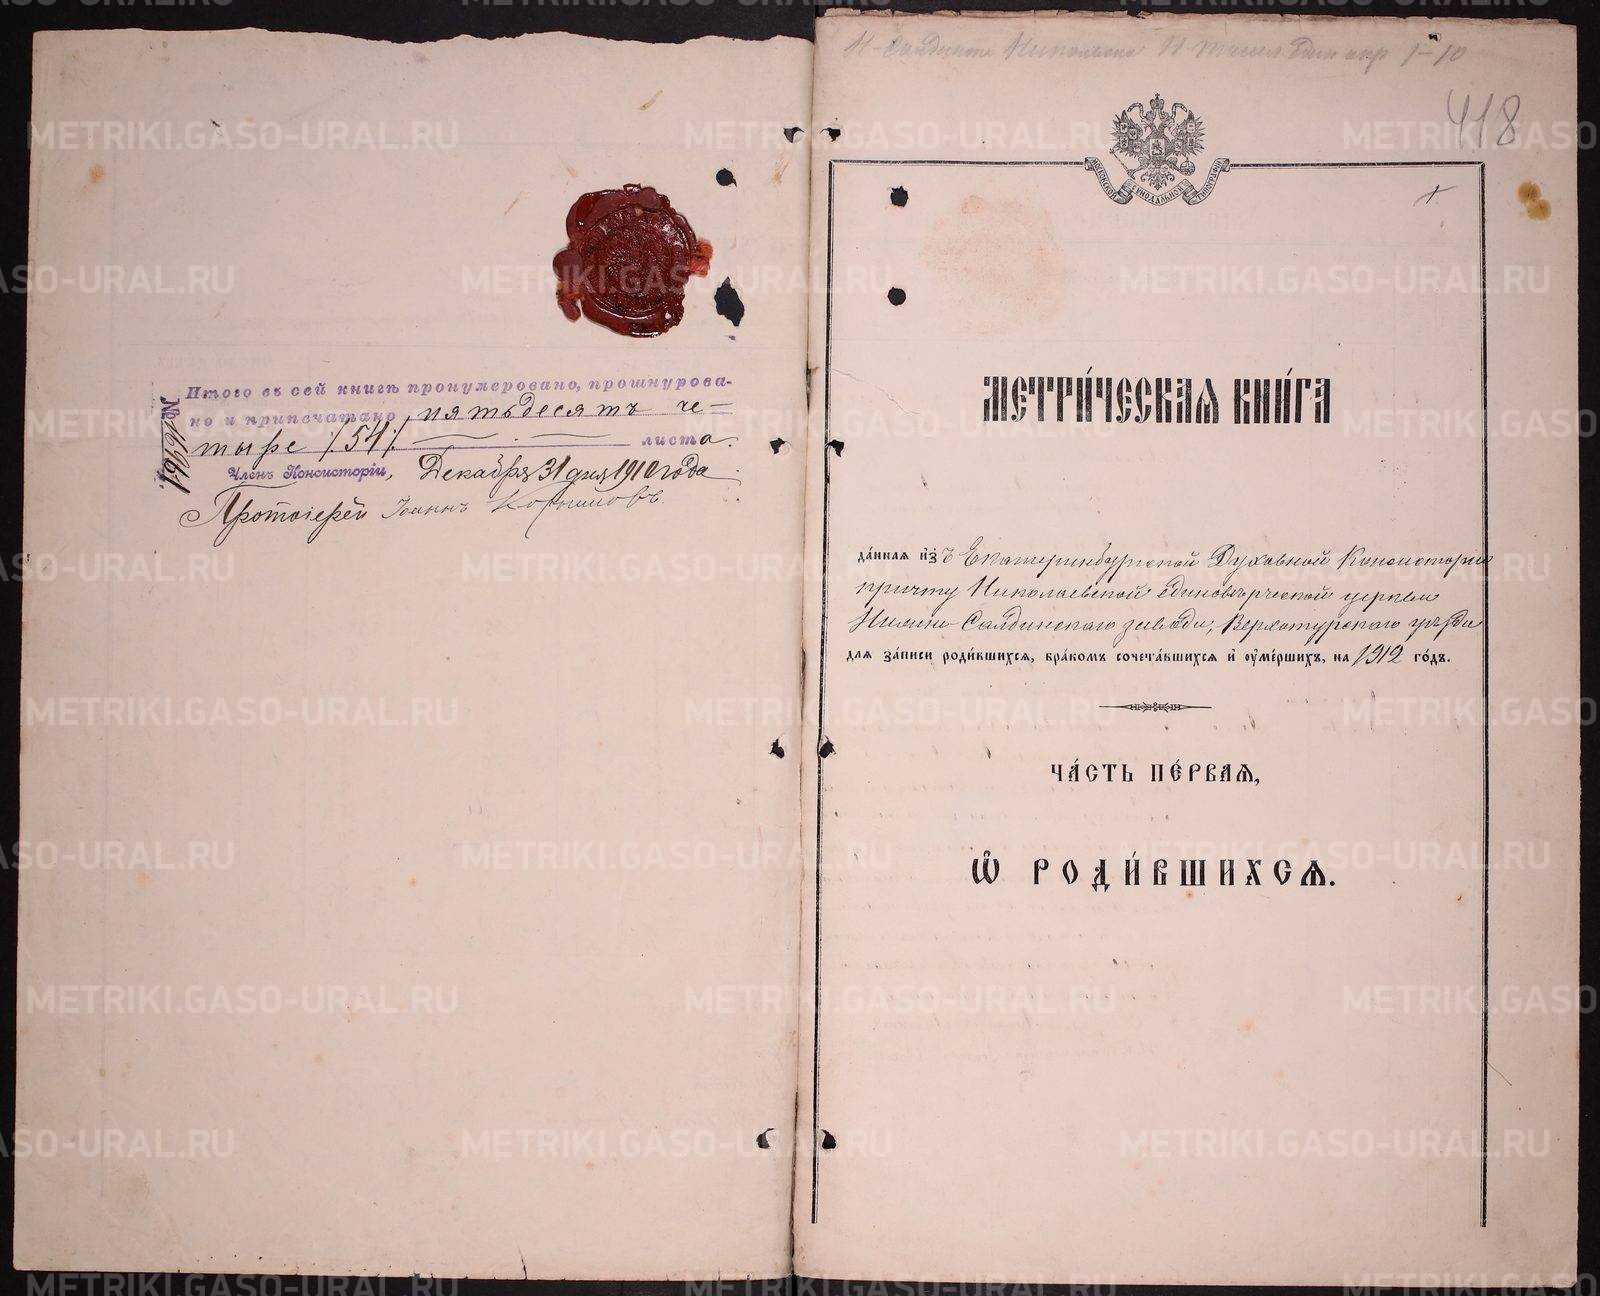 Итого въ сей книгѣ пронумеровано, прошнурова-
но и припечатано пятьдесятъ че-
тыре /54/ листа.
Членъ Консисторіи, Декабря 31 дня 1910 года
Протоіерей Іоаннъ
418
МОСКОВСКОЙ СѴНОДАЛЬНОЙ ТИПОГРАФІИ
МЕТРИ́ЧЕСКАѦ КНИ́ГА
да́нная и҆зъ Екатеринбургской Духовной Консисторіи
причту Николаевской единовѣрческой церкви
Нижне-Салдинскаго завода, Верхотурскаго уѣзда
для за́писи роди́вшихся, бра́комъ сочета́вшихся и҆ оу҆ме́ршихъ, на 1912 го́дъ.
ЧА́СТЬ ПЕ́РВАѦ,
Ѽ РОДИ́ВШИХСѦ.
METRIKI.GASO-URAL.RU